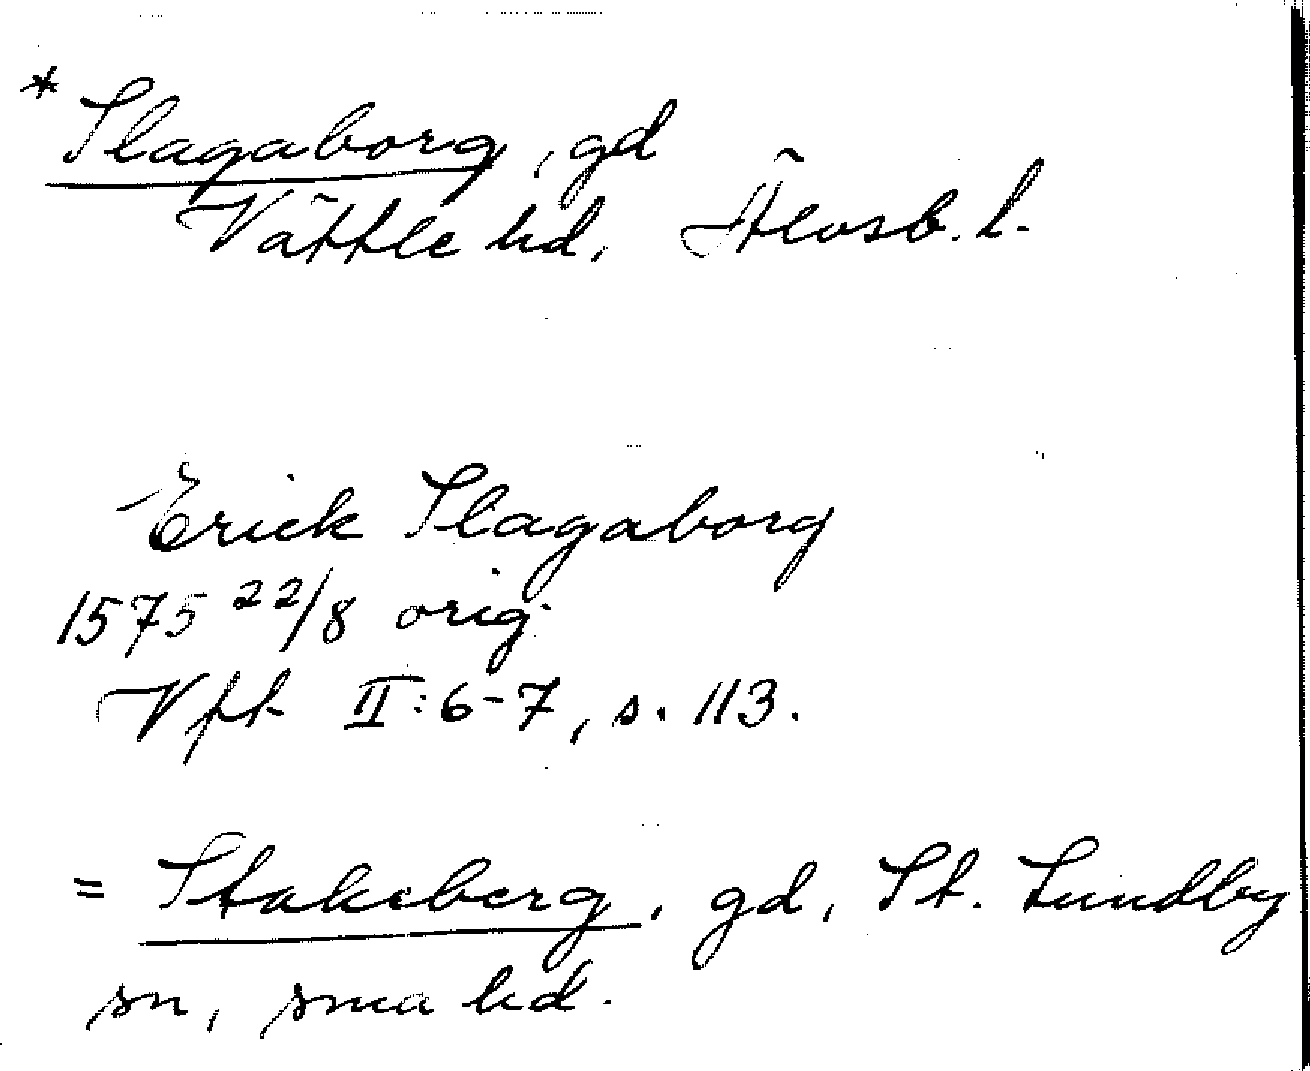 * Slagaborg, gd
Vättle hd, Älvsb. l.
Erick Slagaborg
1575 22/8 orig.
Vft II:6-7, s. 113.
= Stakeberg, gd, St. Lundby
sn, sma hd.